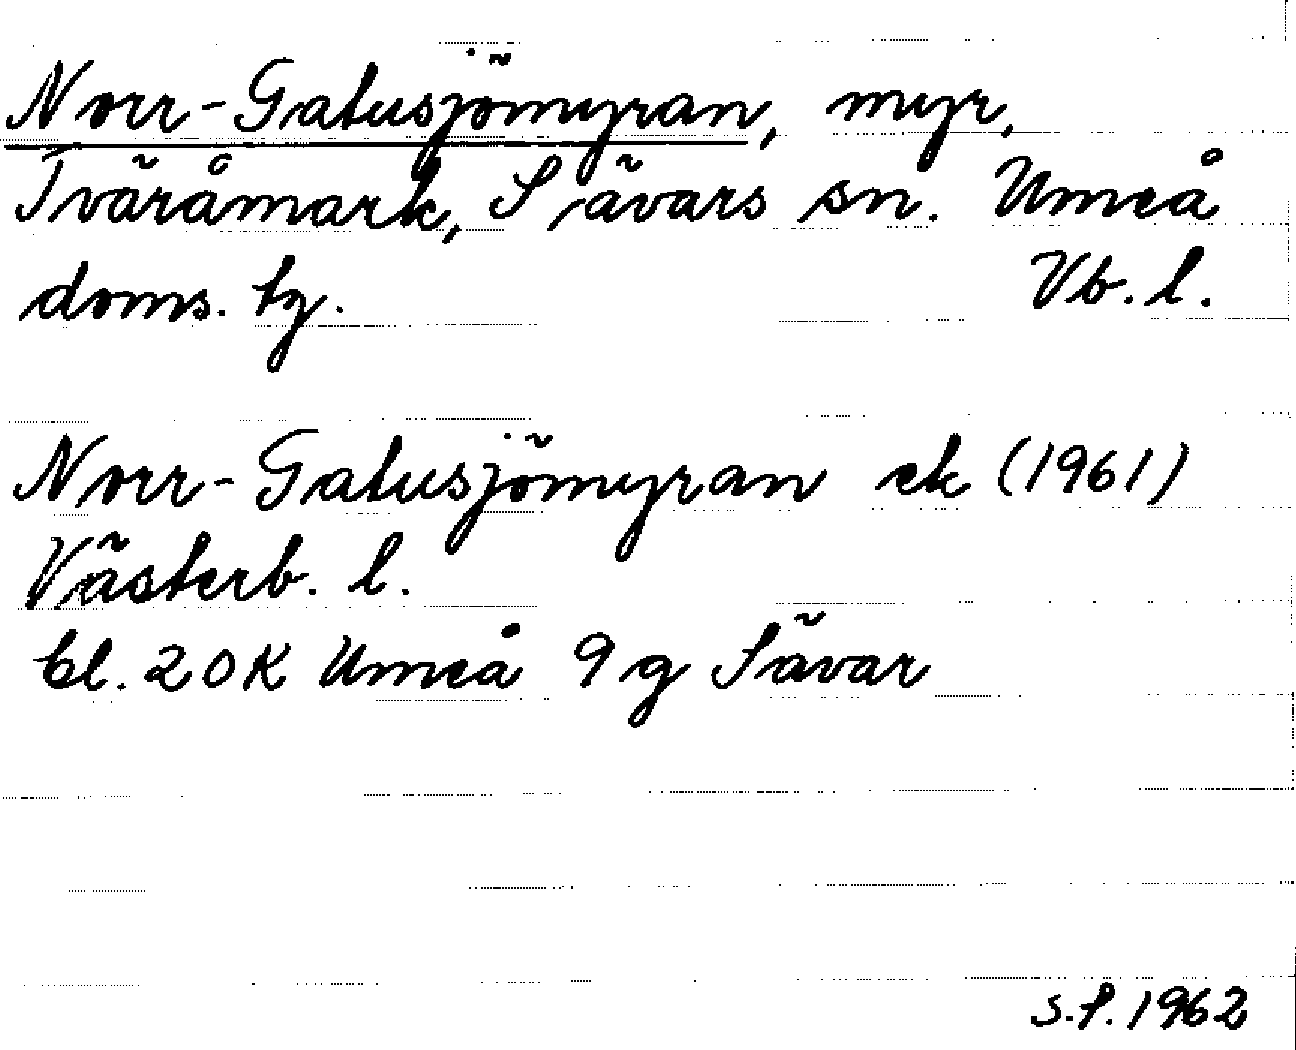 Norr-Gatusjömyran, myr,
Tväråmark, Sävars sn. Umeå
doms. tg. Vb. l.
Norr-Gatusjömyran ek (1961)
Västerb. l.
bl. 20K Umeå 9g Sävar
S.P. 1962